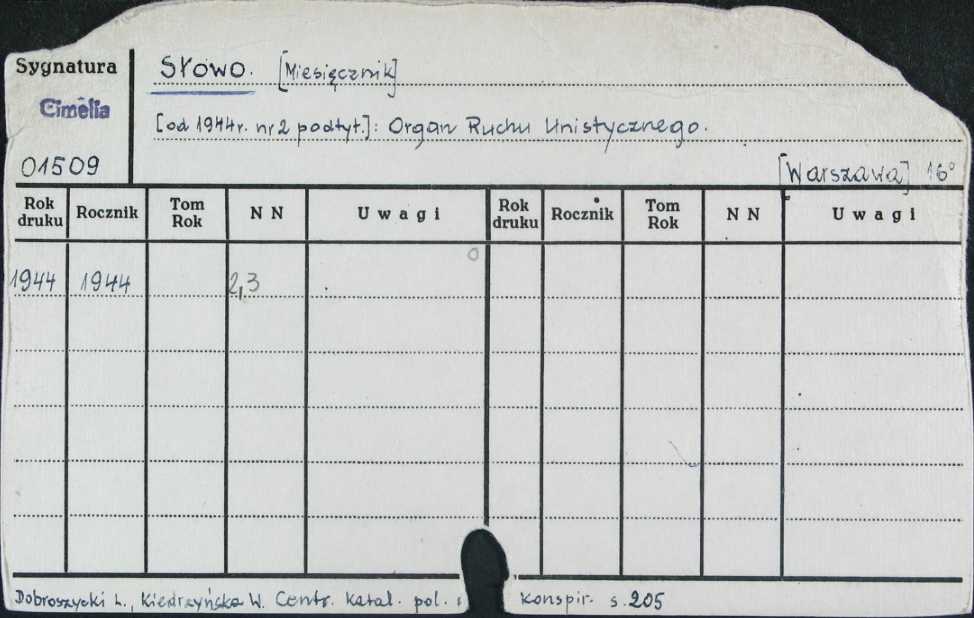 Sygnatura
Słowo. [Miesięcznik]
Cimelia
[od 1944r. nr 2 podtyt.]: Organ Ruchu Unistycznego.
01509
[Warszawa] 16°
Rok druku Rocznik Tom Rok NN Uwagi Rok druku Rocznik Tom Rok NN Uwagi
1944 1944 2,3
Dobroszycki L., Kiedrzyńska W. Centr. katal. pol. konspir. s. 205